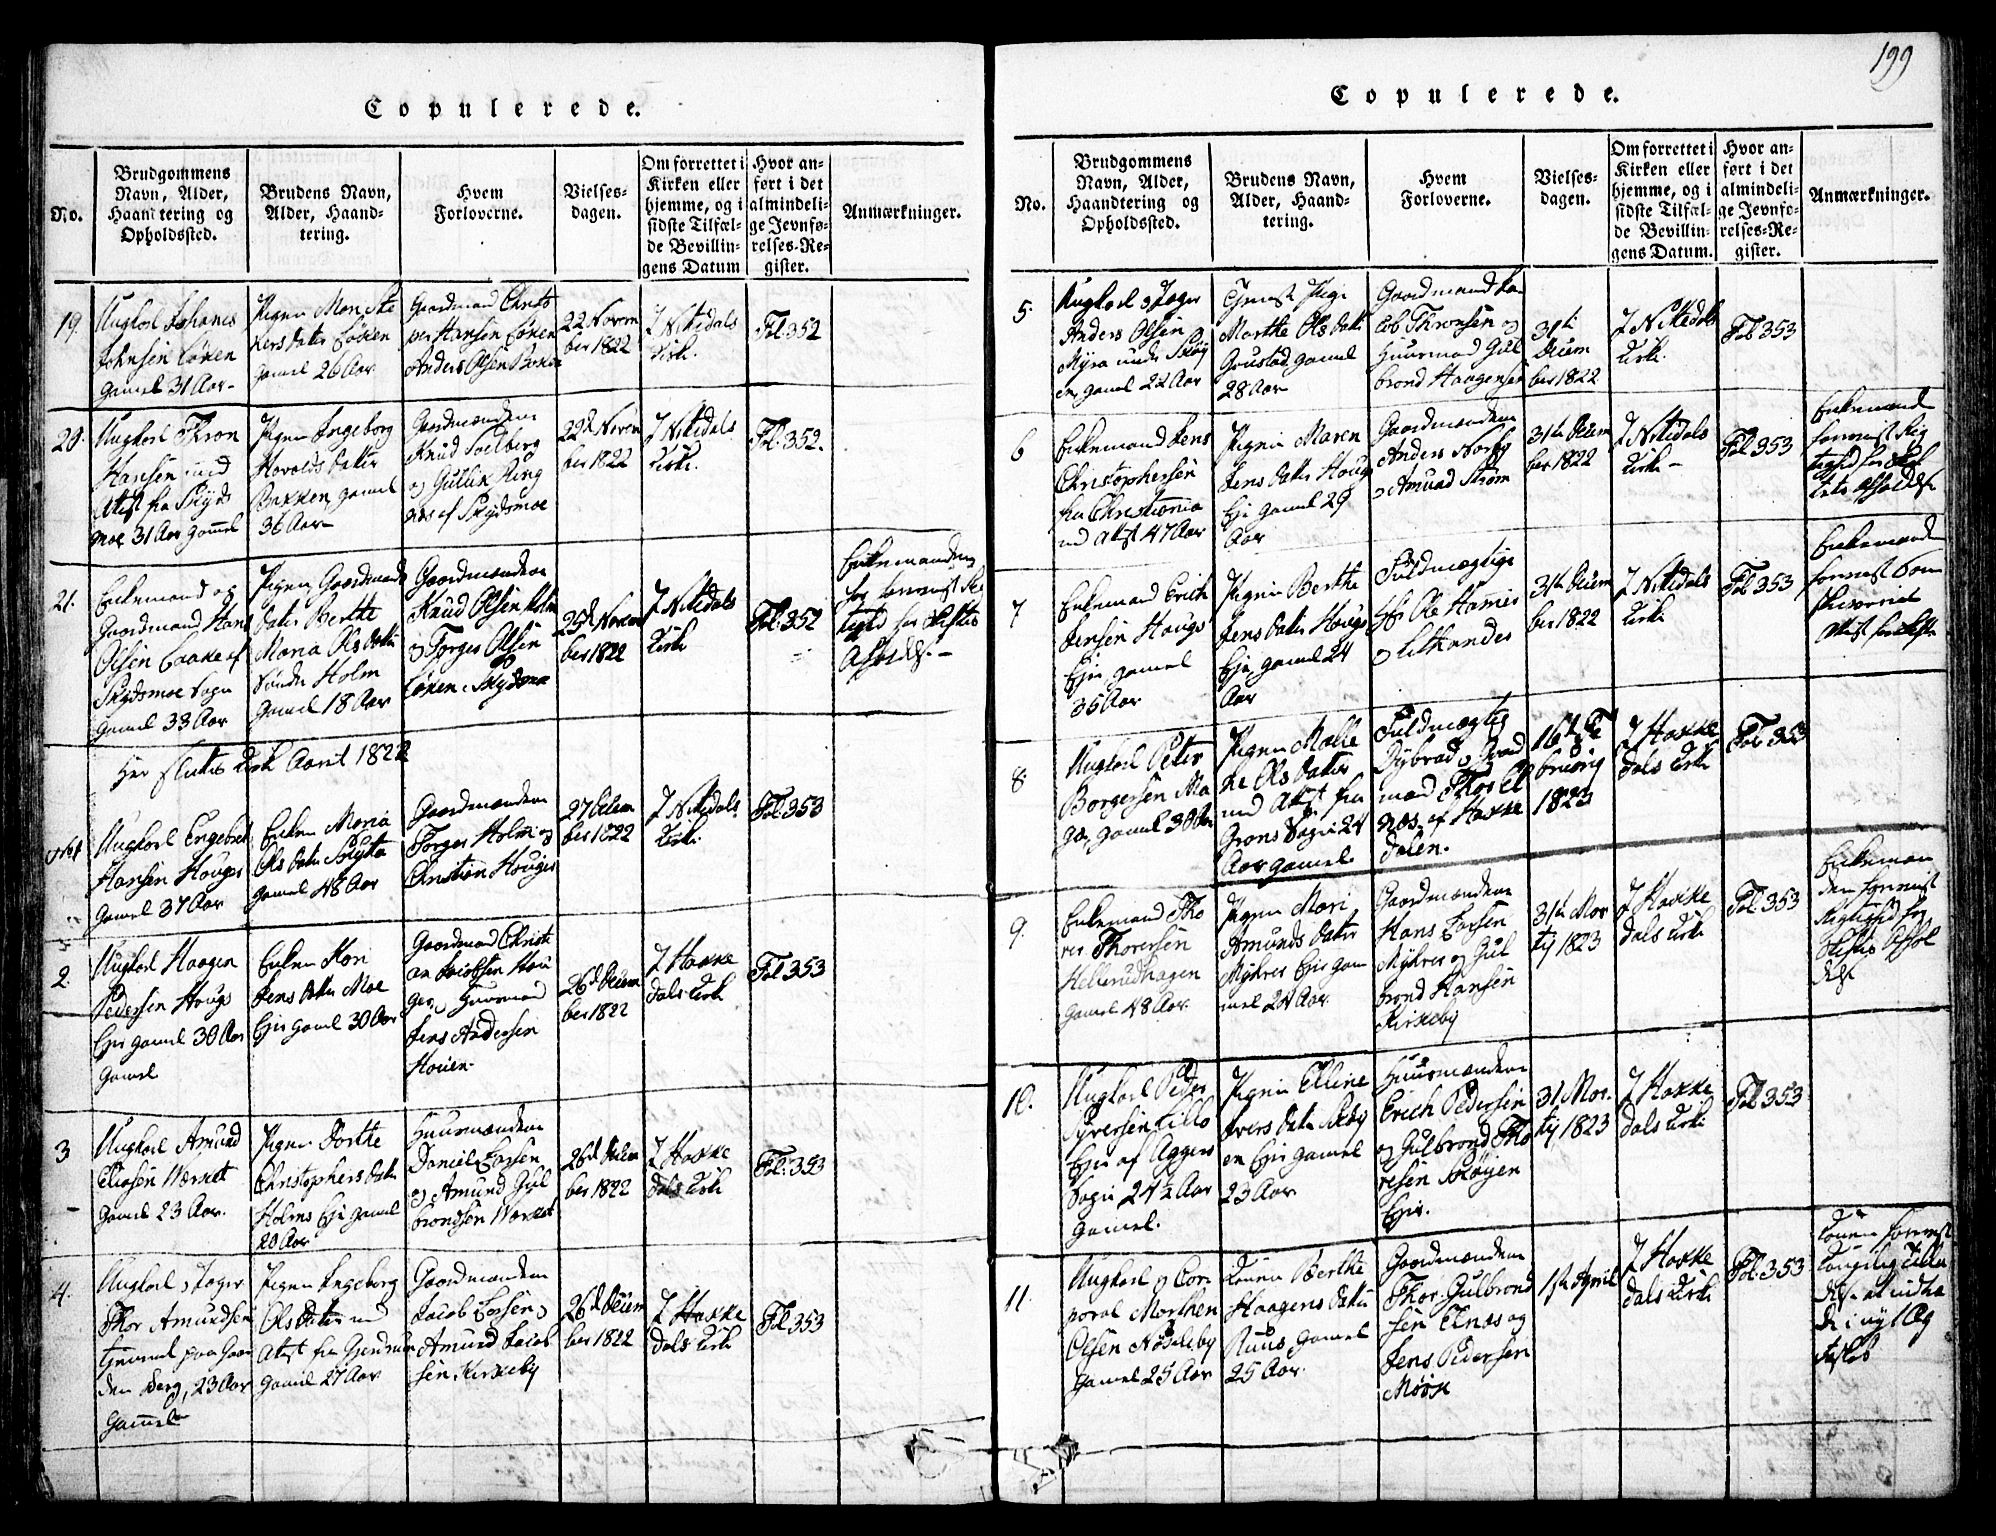 Copulerede.
No.
Brudgommens
Navn, Alder,
Haandtering og
Opholdssted.
Brudens Navn,
Alder, Haand-
tering.
Hvem
Forloverne.
Vielses-
dagen.
Om forrettet i
Kirken eller
hjemme, og i
sidste Tilfæl-
de Bevillin-
gens Datum
Hvor an-
ført i det
almindeli-
ge Jevnfø-
relses-Re-
gister.
Anmærkninger.
19.
Ungkarl Johanes
Johnsen Løken
gamel 31 Aar
Pigen
Løken
gamel 26 Aar
Gaardmand Christo
per Hansen Løken
Anders Olsen
22 Novem
ber 1822
I Nitedals
Kirke
Fol 352
20.
Ungkarl Thron
Hansen med
Attest fra Skyds
moe 31 Aar gamel
Pigen Ingeborg
Haralds datter
Bakken gamel
36 Aar
Gaardmændene
Knud Soelberg
og Gullik Ring
næs af Skydsmoe
22d Novem
ber 1822
I Nitedals
Kirke.
Fol. 352.
21.
Enkemand og
Gaardmand Hans
Olsen Laake af
Skydsmoe Sogn
gamel 33 Aar
Pigen Gaardmands
datter Berthe
Maria Ols datter
Søndre Holm
gamel 18 Aar
Gaardmændene
Knud Olsen Holm
og Torges Olsen
Løken i Skydsmoe
25d Novem
ber 1822
I Nitedals
Kirke
Fol. 352
Enkemanden
har forevist
for Skiftes
Afholdelse
Her sluttes Kirke Aaret 1822
No 1
Ungkarl Engebret
Hansen Houger
gamel 37 Aar
Enken Maria
Ols datter Skytta
gamel 48 Aar
Gaardmændene
Torges Holm og
Christian Houger
27 Decem
ber 1822
I Nitedals
Kirke.
Fol. 353
2.
Ungkarl Haagen
Pedersen Hougs
Eje gamel 30 Aar
gamel
Enken Kari
Jens datter Moe
Eje gamel 30 Aar
Gaardmand Christi
an Jacobsen Hou
ger, Huusmand
Jens Andersen
Houen
26d Decem
ber 1822
I Hakke
dals Kirke
Fol 353
3
Ungkarl Amund
EliasenVærket
gamel 23 Aar.
Pigen Dorthe
Christophers datter
Holms Eje gamel
20 Aar
Huusmændene
Daniel Larsen
og Amund Gul
brandsen Værket
26d Decem
ber 1822
I Hakke
dals Kirke
Fol. 353
4.
Ungkarl, Jæger
Thor Amundsen
tjenende paa Gaar
den Berg, 23 Aar
gamel
Pigen Ingeborg
Ols datter med
Attest fra Gjerdrum
gamel 27 Aar
Gaardmændene
Jacob Larsen og
Amund Jacob
sen Kirkeby
26d Decem
ber 1822
I Hakke
dals Kirke
Fol 353
199
Copulerede.
No.
Brudgommens
Navn, Alder,
Haandtering og
Opholdssted.
Brudens Navn,
Alder, Haand-
tering.
Hvem
Forloverne.
Vielses-
dagen.
Om forrettet i
Kirken eller
hjemme, og i
sidste Tilfæl-
de Bevillin-
gens Datum.
Hvor an-
ført i det
almindeli-
ge Jevnfø-
relses-Re-
gister.
Anmærkninger.
5.
Ungkarl, Jæger
Anders Olsen
Myra under Skøy
en, gamel 22 Aar
Tjeneste Pige
Marthe Ols datter
Groustad gamel
28 Aar
Gaardmand Ja
cob Thronsen og
Huusmand Gul
brand Haagensen
31te
Decem
ber 1822
I Nitedals
Kirke.
Fol 353
6
Enkemand Jens
Christophersen
fra Christiania
med Attest 47 Aar
Pigen Maren
Jens datter Hougs
Eje gamel 29
Aar
Gaardmændene
Anders Norby
og Amund Strøm
31te Decem
ber 1822
I Nitedals
Kirke
Fol 353
Enkemand
forevist Rig
tighed for Skif
tets Afholdelse
7
Enkemand Erich
Jensen Hougs
Eje, gamel
35 Aar
Pigen Berthe
Jens datter Hougs
Eje, gamel 24
Aar
Fuldmægtige
Hr Ole Hannes
og
31te Decem
ber 1822
I Nitedals
Kirke
Fol 353
Enkemand
forevist
Attest for Skifte
8.
Ungkarl Peter
Borgersen Ma
gæ, gamel 30 Aar
Pigen Malle
ne Ols datter
med Attest fra
Grans Sogn 24
Aar gamel.
Fuldmægtig
Dybrad, Gaard
mand Thor El
næs, af Hakke
dalen.
16de Fe
bruarij
1823
I Hakke
dals Kirke
Fol 353
9.
Enkemand Tho
res Thoresen
Hellerudhagen
gamel 48 Aar.
Pigen Mari
Amunds datter
Mykres Eje gam
mel 24 Aar
Gaardmændene
Hans Larsen
Mykres og Gul
brand Hansen
Kirkeby
31te Mar
tij 1823
I Hakke
dals Kirke
Fol. 353
Enkeman
den forevist
Rigtighed for
Skiftets Afhol
delse
10.
Ungkarl Peder
Syversen Lillo
Eje af Aggers
Sogn 24½ Aar
gamel.
Pigen Elline
Ivers datter
Eje gamel
23 Aar.
Huusmændene
Erich Pedersen
og Gulbrand Tho
resen Skøyen
Eje.
31 Mar.
tij 1823
I Hakke
dals Kirke
Fol 353
11.
Ungkarl og Cor
poral Marthen
Olsen
gamel 25 Aar
Konen Berthe
Haagens datter
Ruus gamel
25 Aar.
Gaardmændene
Thor Gulbrand
sen Elnæs og
Jens Pedersen
Mørk
1ste April
I Hakke
dals Kirke
Fol. 353
Konen forevist
Kongelig Tilla
delse at indtræ
de i nyt Æg
teskab